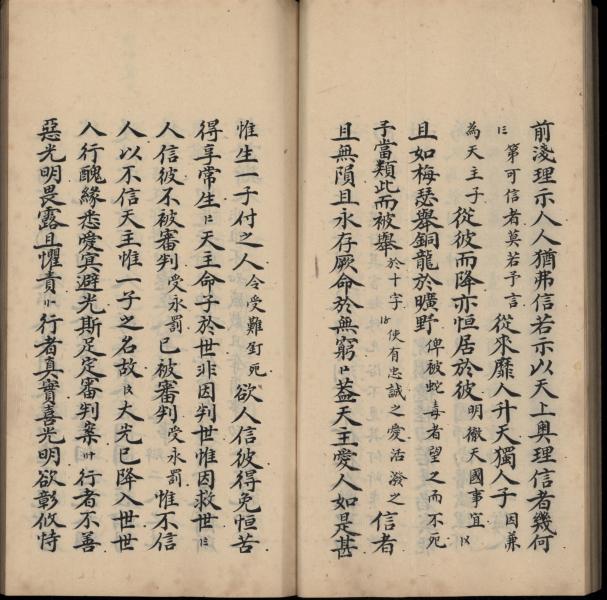 前淺理示入人猶弗信若示以天上奧理信者幾何
第可信者莫若予言從來靡人升天獨人子因兼
為天主子從彼而降亦恒居於彼明徹天國事宜
且如梅瑟舉銅龍於曠野俾被蛇毒者望之而不死
子當類此而被舉於十字使有忠誠之愛活潑之信者
且無隕且永存厥命於無窮蓋天主愛人如是甚
惟生一子付之人令受難釘死欲人信彼得免恒苦
得享常生天主命子於世非因判世惟因救世
人信彼不被審判受永罰已被審判受永罰惟不信
人以不信天主惟一子之名故大光已降入世世
人行醜緣悉愛冥避光斯足定審判案行者不善
惡光明畏露且懼責行者真實喜光明欲彰攸恃